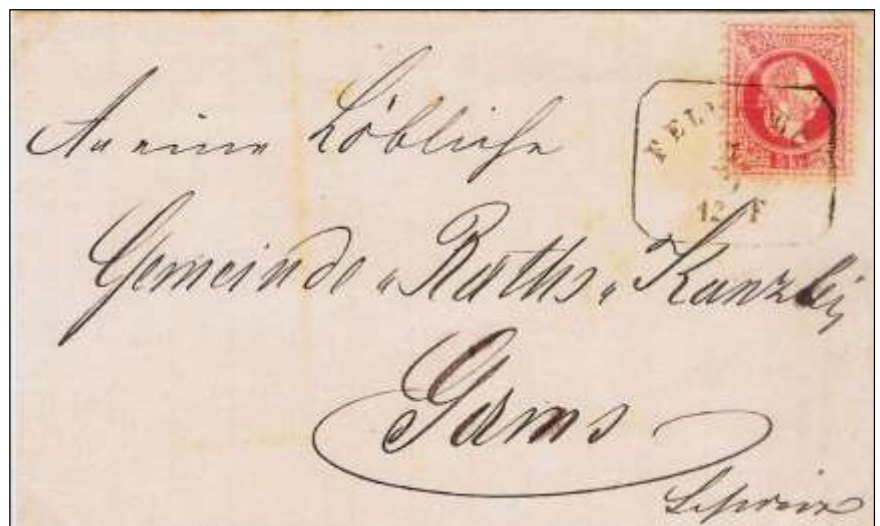 An eine Löbliche
FEL
12 F
Gemeinde „Raths„ Kanzlei
Gams
Schweiz